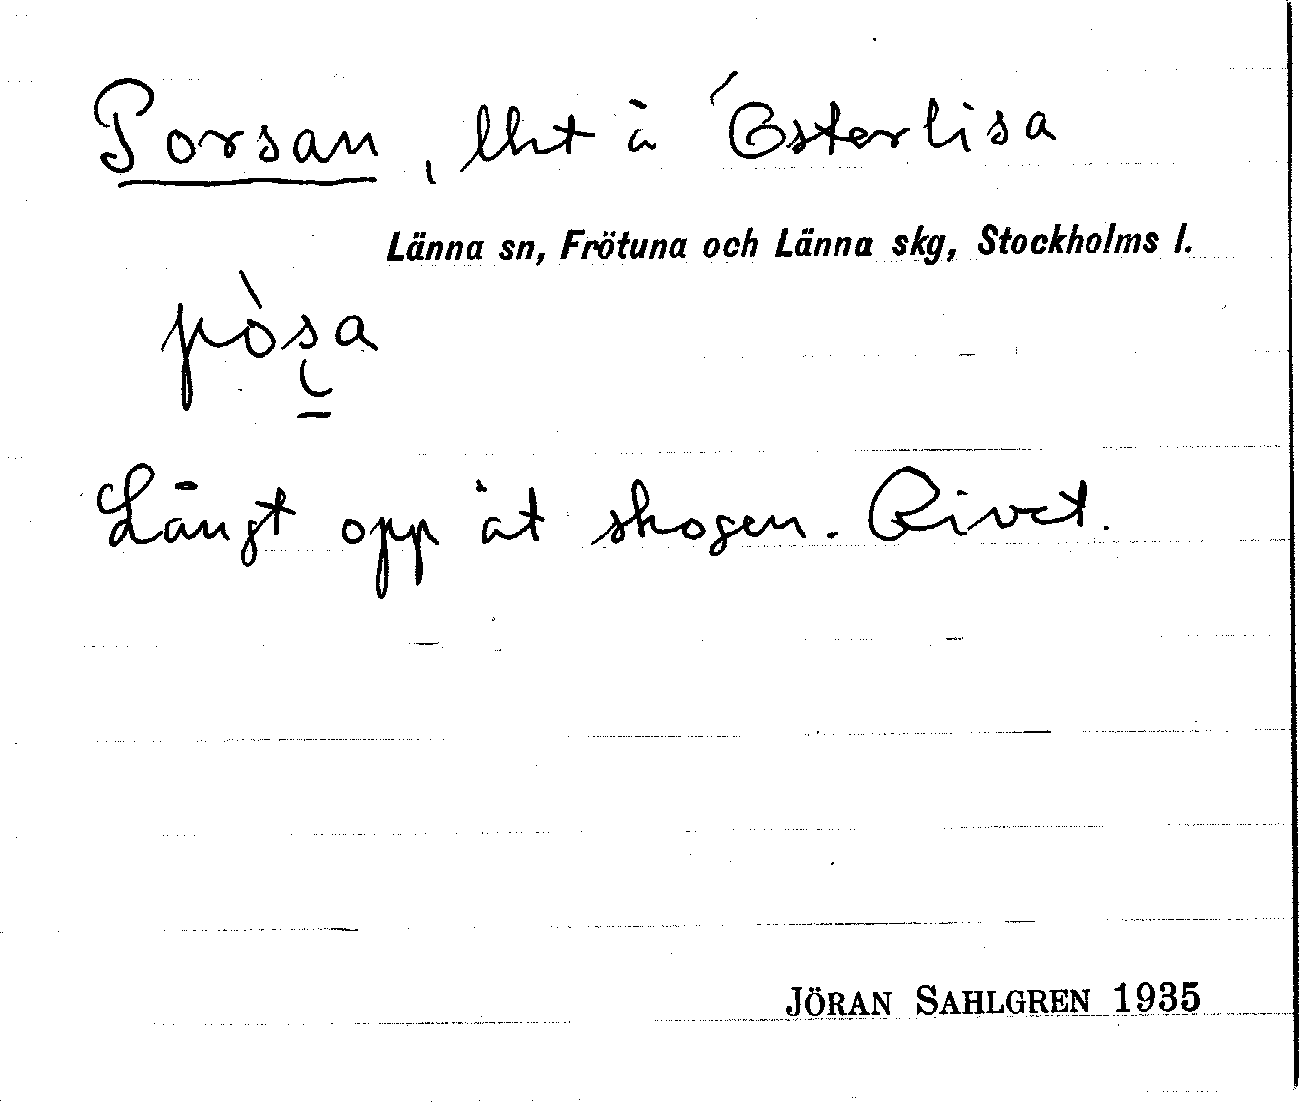 Porsan, lht å Österlisa
Länna sn, Frötuna och Länna skg, Stockholms l.
pòsa
Långt opp åt skogen. Rivet.
JÖRAN SAHLGREN 1935